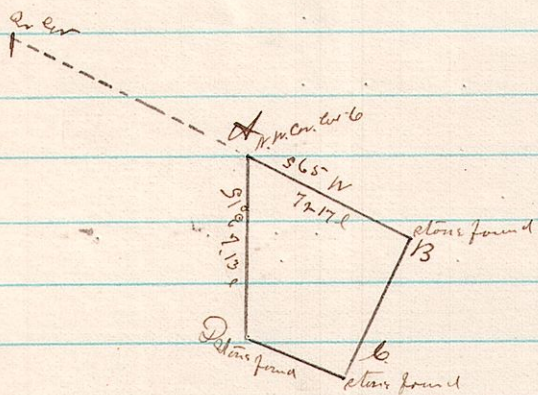 Qr Cor
A N.W. Cor. Lot 6
S65 W
7217 l
B stone found
C stone found
D stone found